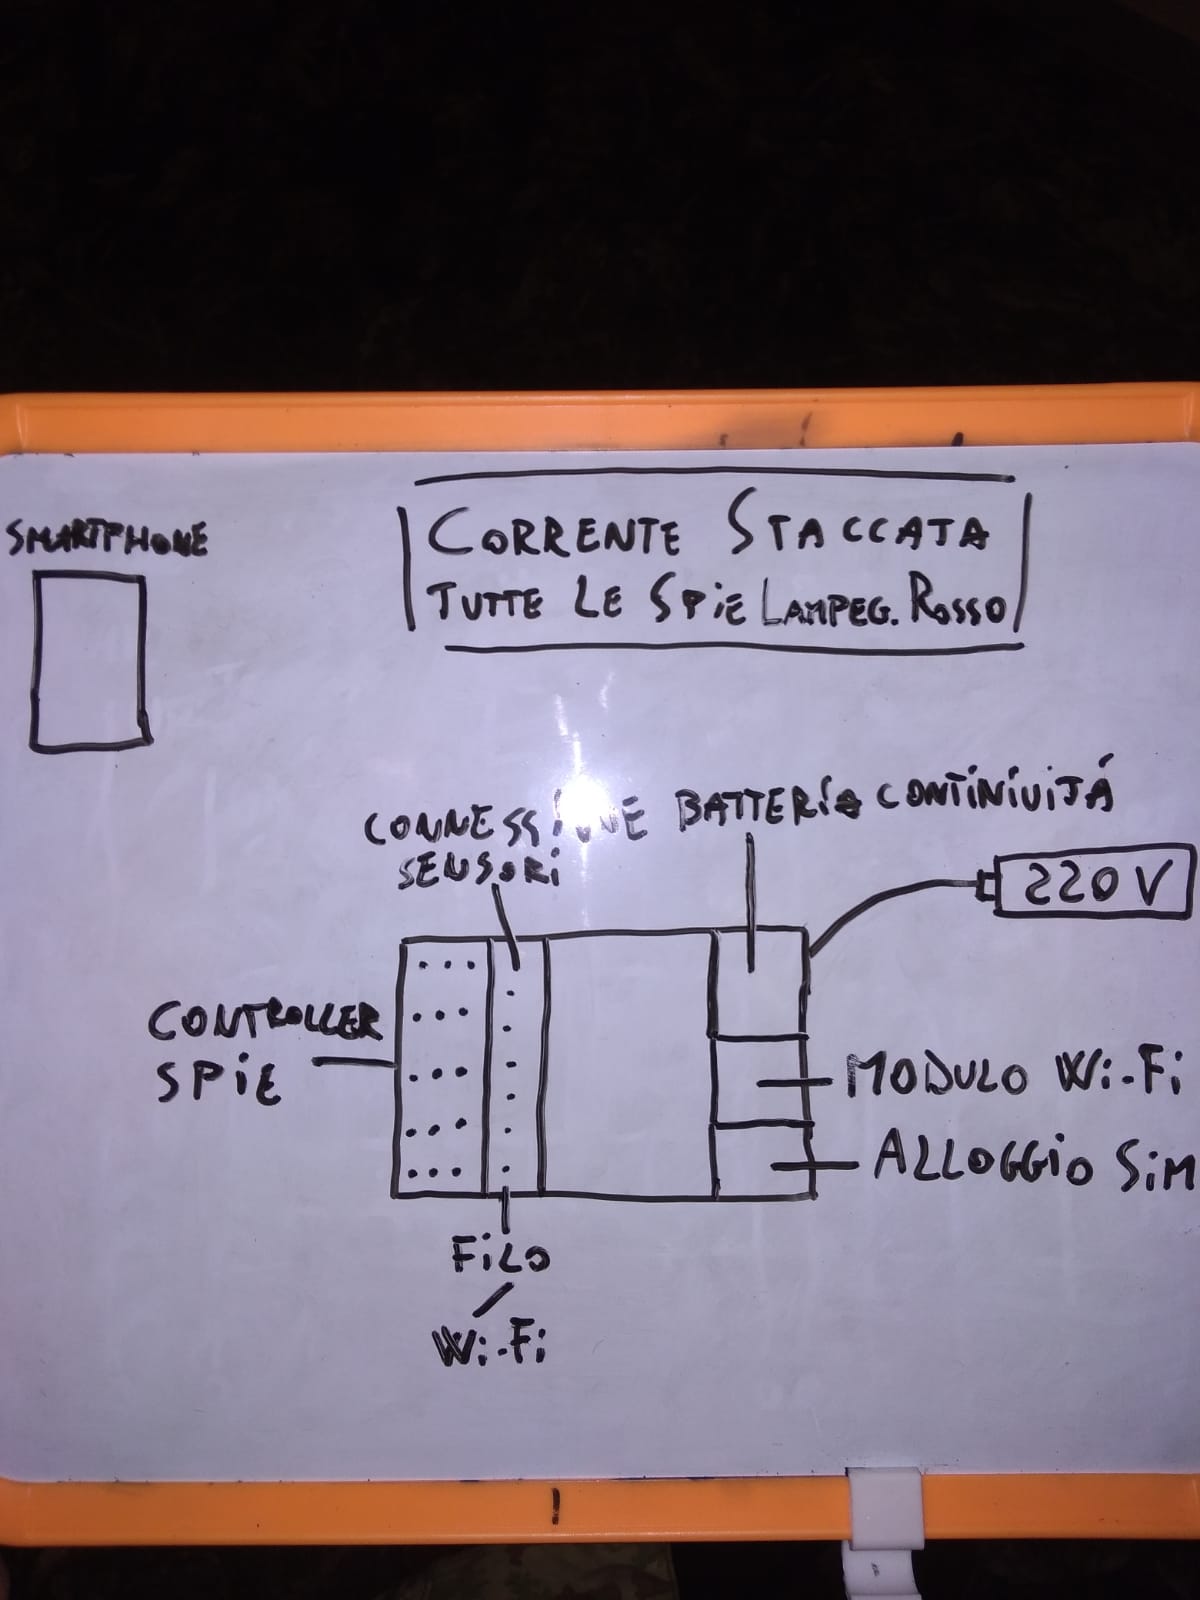 SMARTPHONE
CORRENTE STACCATA
TUTTE LE SPiE LAMPEG. ROSSO
CONNESSiONE
SENSORi
BATTERiA CONTiNiUiTÁ
220V
CONTROLLER
SPiE
MODULO Wi-Fi
ALLOGGiO SiM
FiLO
/
Wi-Fi